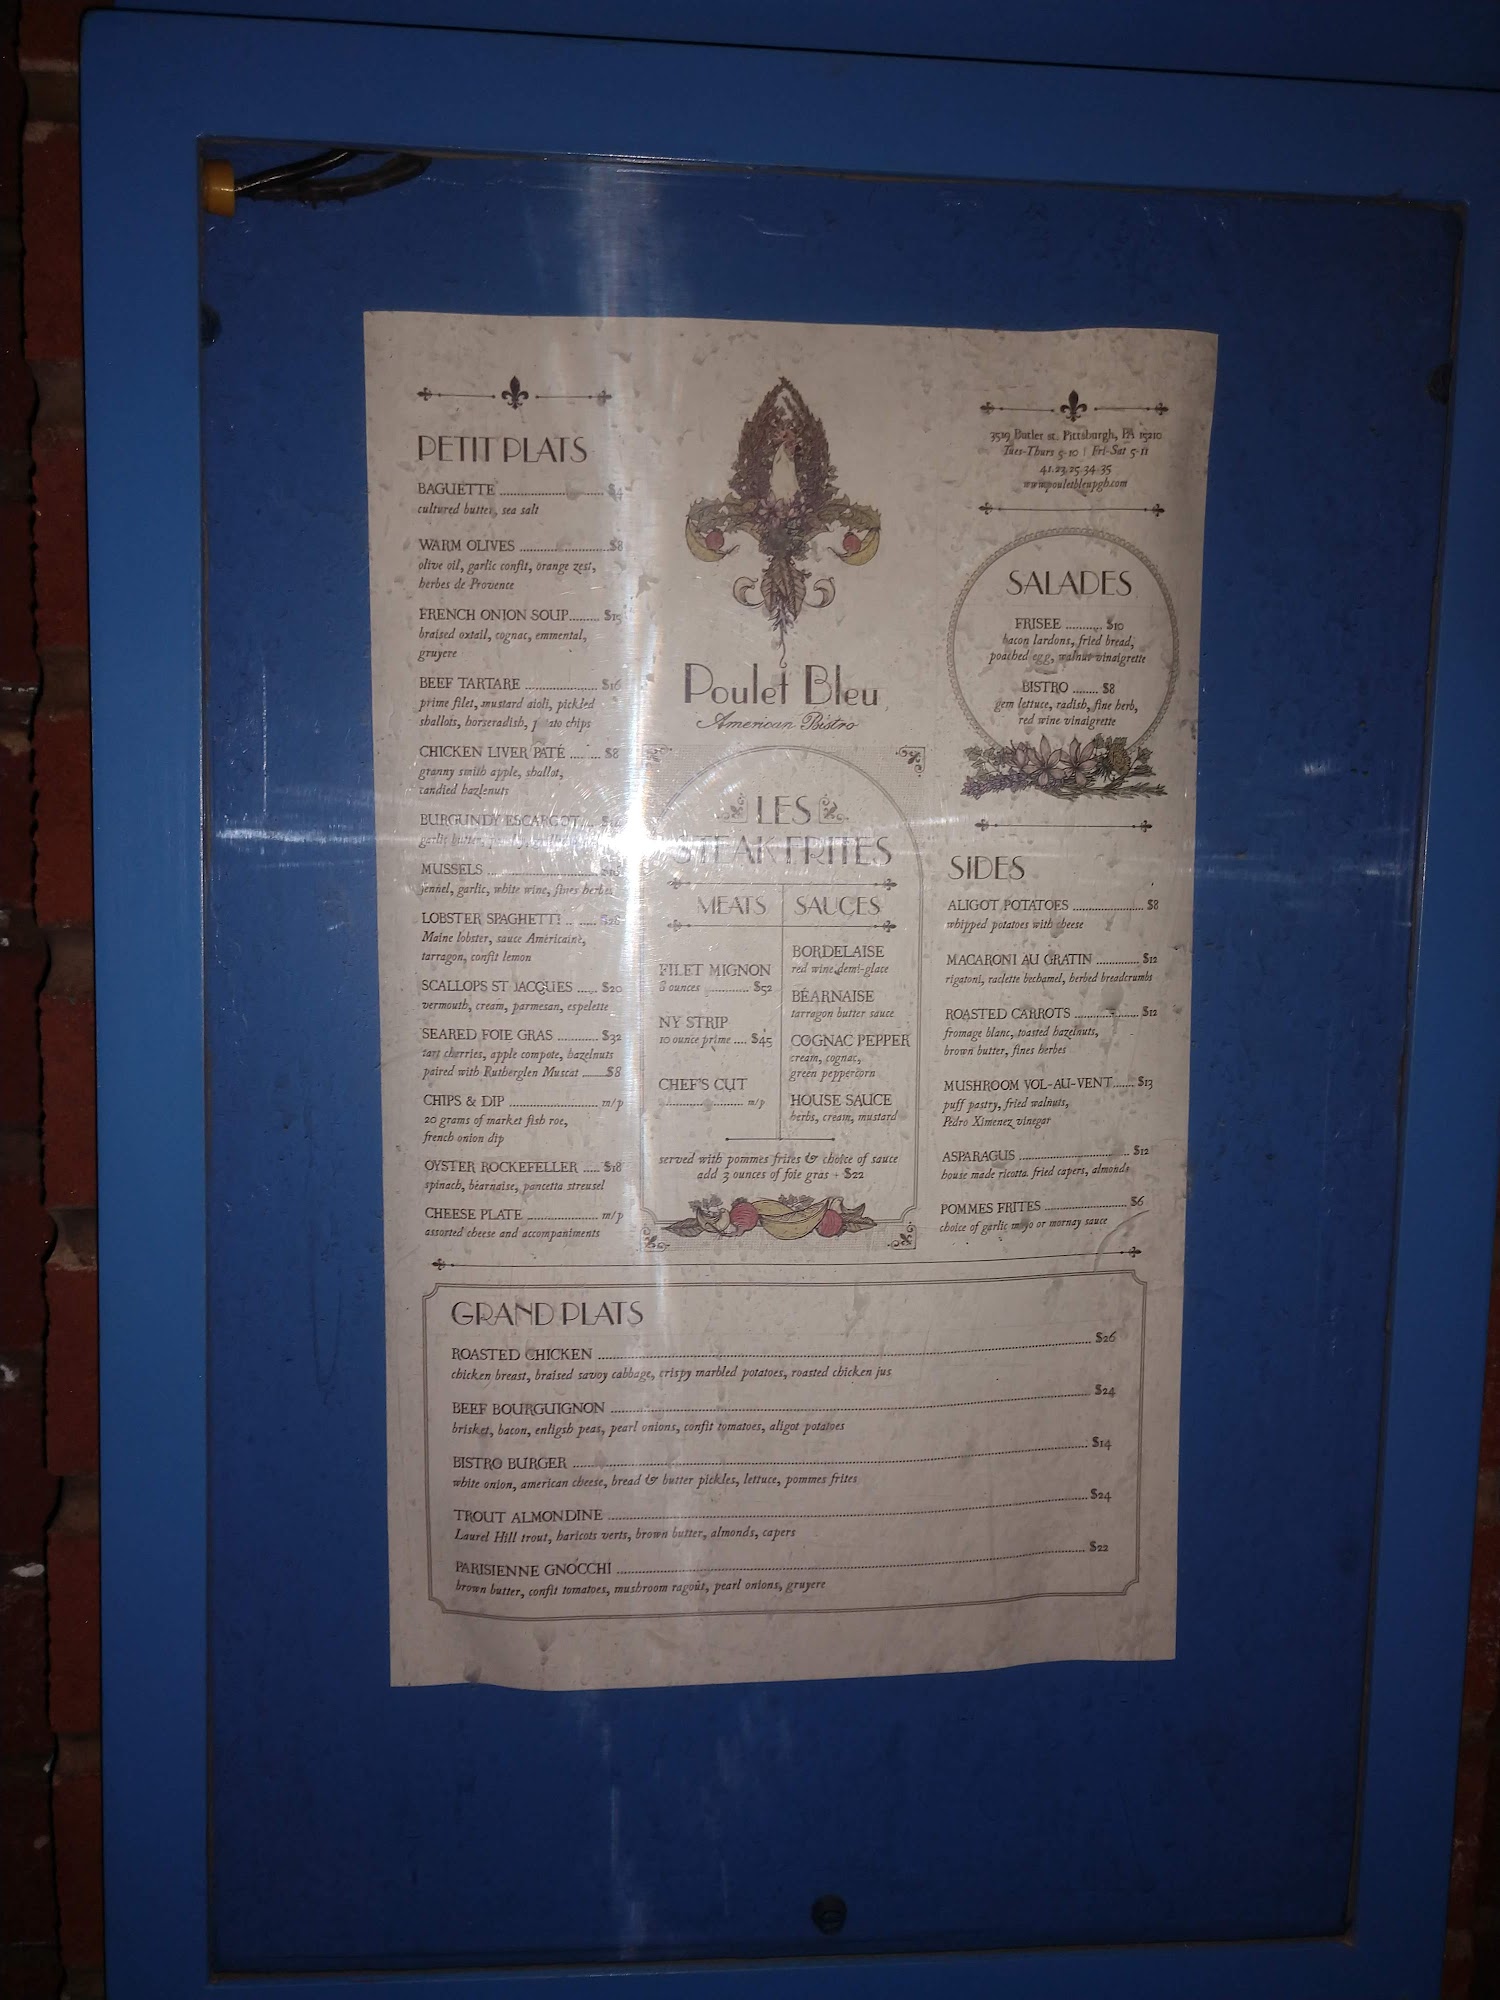 PETIT PLATS
BAGUETTE ........ $4
cultured butter, sea salt
WARM OLIVES ........ $8
olive oil, garlic confit, orange zest,
herbes de Provence
FRENCH ONION SOUP ........ $15
braised oxtail, cognac, emmental,
gruyere
BEEF TARTARE ........ $16
prime filet, mustard aioli, pickled
shallots, horseradish, chips
CHICKEN LIVER PATÉ ........ $8
granny smith apple, shallot,
candied hazlenuts
BURGUNDY ESCARGOT
garlic butter,
MUSSELS
fennel, garlic, white wine, fines herbes
LOBSTER SPAGHETTI
Maine lobster, sauce Américaine,
tarragon, confit lemon
SCALLOPS ST JACQUES ..... $20
vermouth, cream, parmesan, espelette
SEARED FOIE GRAS ........ $32
tart cherries, apple compote, hazelnuts
paired with Rutherglen Muscat ........ $8
CHIPS & DIP ........ m/p
20 grams of market fish roe,
french onion dip
OYSTER ROCKEFELLER ..... $18
spinach, béarnaise, pancetta streusel
CHEESE PLATE ........ m/p
assorted cheese and accompaniments
Poulet Bleu
American Bistro
LES
STEAK FRITES
MEATS
FILET MIGNON
8 ounces ........ $52
NY STRIP
10 ounce prime .... $45
CHEF'S CUT
........ m/p
SAUCES
BORDELAISE
red wine demi-glace
BÉARNAISE
tarragon butter sauce
COGNAC PEPPER
cream, cognac,
green peppercorn
HOUSE SAUCE
herbs, cream, mustard
served with pommes frites & choice of sauce
add 3 ounces of foie gras + $22
3519 Butler st. Pittsburgh, PA 15210
Tues-Thurs 5-10 | Fri-Sat 5-11
41.23.25.34.35
www.pouletbleupgh.com
SALADES
FRISEE ........ $10
bacon lardons, fried bread,
poached egg, walnut vinaigrette
BISTRO ....... $8
gem lettuce, radish, fine herb,
red wine vinaigrette
SIDES
ALIGOT POTATOES ........ $8
whipped potatoes with cheese
MACARONI AU GRATIN ........ $12
rigatoni, raclette bechamel, herbed breadcrumbs
ROASTED CARROTS ........ $12
fromage blanc, toasted hazelnuts,
brown butter, fines herbes
MUSHROOM VOL-AU-VENT ....... $13
puff pastry, fried walnuts,
Pedro Ximenez vinegar
ASPARAGUS ........ $12
house made ricotta, fried capers, almonds
POMMES FRITES ........ $6
choice of garlic mayo or mornay sauce
GRAND PLATS
ROASTED CHICKEN ........ $26
chicken breast, braised savoy cabbage, crispy marbled potatoes, roasted chicken jus
BEEF BOURGUIGNON ........ $24
brisket, bacon, enligsh peas, pearl onions, confit tomatoes, aligot potatoes
BISTRO BURGER ........ $14
white onion, american cheese, bread & butter pickles, lettuce, pommes frites
TROUT ALMONDINE ........ $24
Laurel Hill trout, haricots verts, brown butter, almonds, capers
PARISIENNE GNOCCHI ........ $22
brown butter, confit tomatoes, mushroom ragoût, pearl onions, gruyere